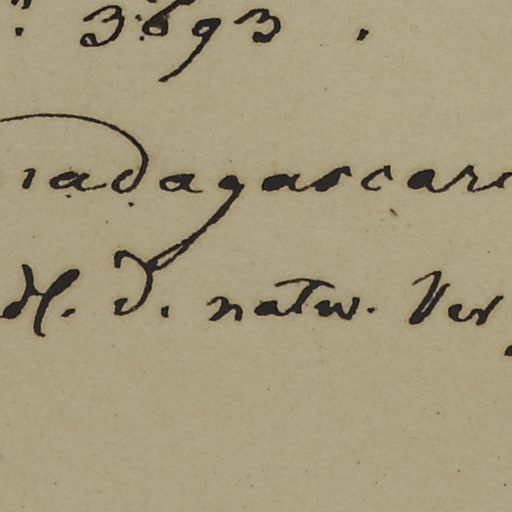 3693.
Madagascare
Abh. d. natw. Ver